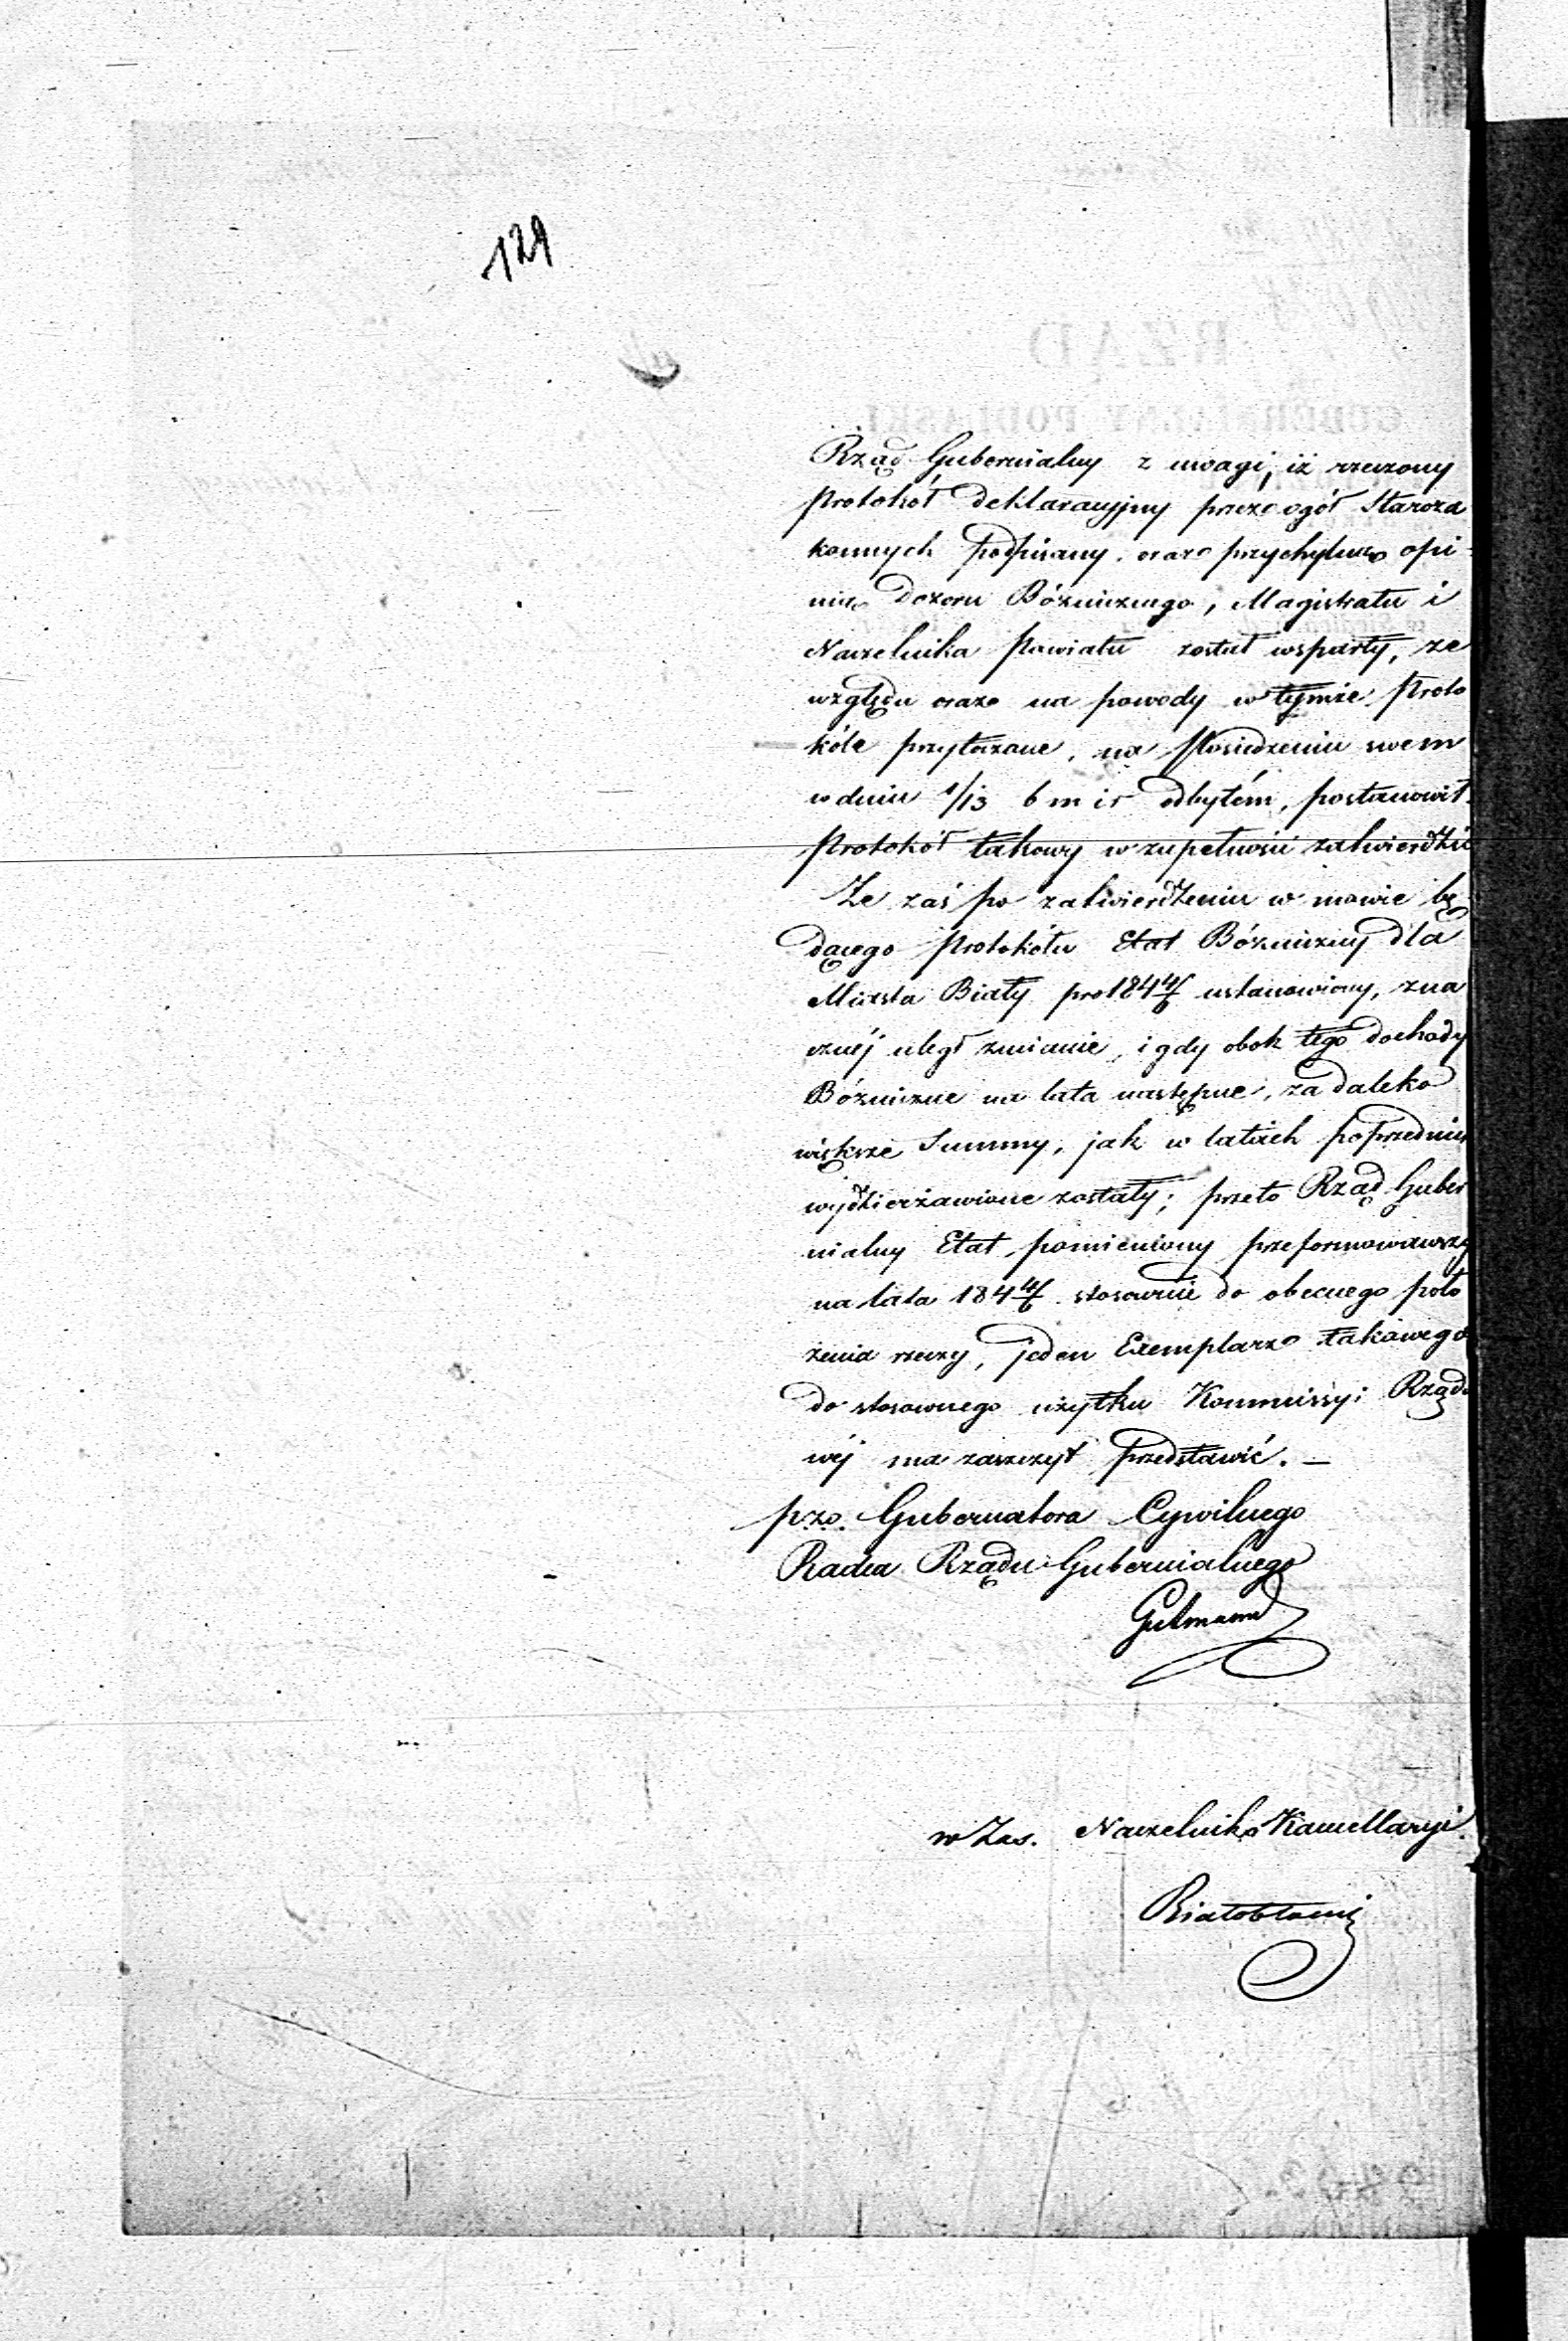 129
Rząd Gubernialny z uwagi, iż rzeczony
Protokół deklaracyjny przez ogół Staroza
konnych podpisany, oraz przychylną opi-
nią Dozoru Bóżniczego, Magistratu i
Naczelnika Powiatu został wsparty, ze
względu oraz na powody w tymże Proto
kóle przytoczone, na Posiedzeniu swem
w dniu 1/13 b m i r odbytém, postanowił
Protokół takowy w zupełności zatwierdzić
Że zaś po zatwierdzeniu w mowie bę
dącego Protokółu Etat Bóżniczny dla
Miasta Biały pro 184 4/6 ustanowiony, zna
cznéj uległ zmianie, i gdy obok tego dochody
Bóżniczne na lata następne, za daleko
większe Summy, jak w latach poprzednich
wydzierżawione zostały; przeto Rząd Guber
nialny Etat pomieniony przeformowawszy
na lata 184 4/6 stosownie do obecnego poło
żenia rzeczy, jeden Exemplarz takowego
do stosownego użytku Kommissyi Rządo
wéj ma zaszczyt przedstawić. —
p.z.o. Gubernatora Cywilnego
Radca Rządu Gubernialnego
Gutmann
w Zas. Naczelnika Kancellaryi
RZĄD
GUBERNIALNY PODLASKI